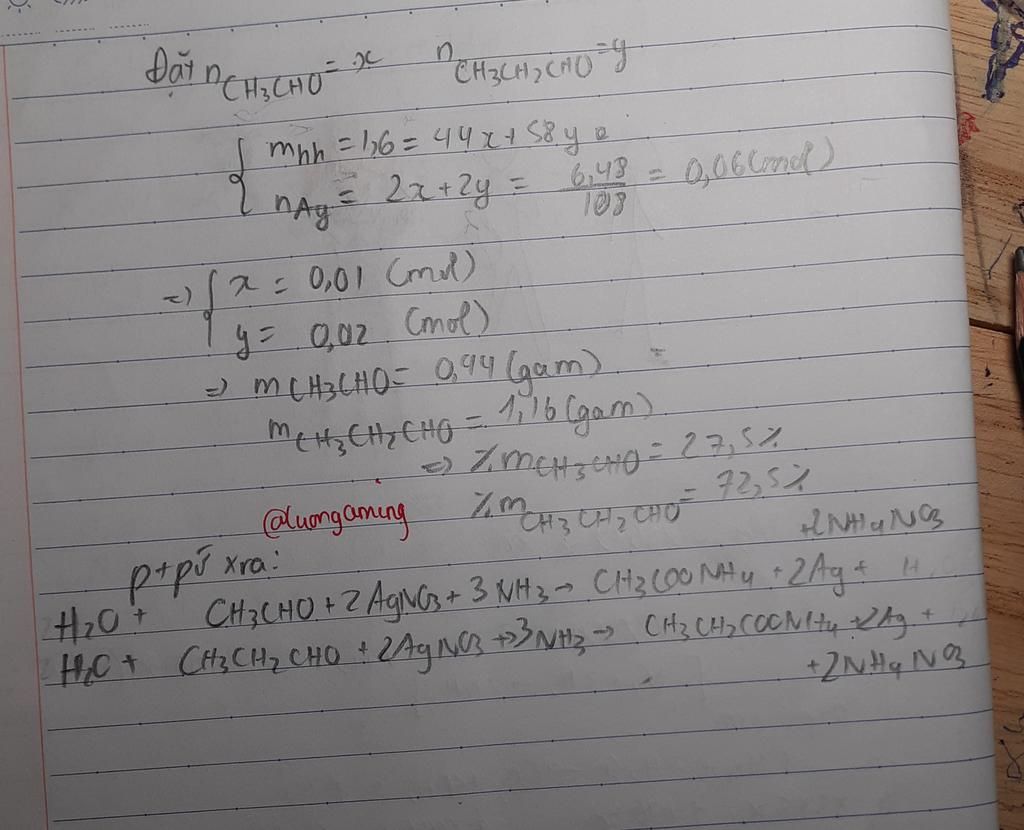 Đặt nCH3CHO = x nCH3CH2CHO = y
mhh = 1,6 = 44x + 58y
nAg = 2x + 2y = 6,48/108 = 0,06 (mol)
=> x = 0,01 (mol)
y = 0,02 (mol)
=> mCH3CHO = 0,44 (gam)
mCH3CH2CHO = 1,16 (gam)
=> %mCH3CHO = 27,5%
%mCH3CH2CHO = 72,5%
@luongaming
p+pứ xra:
H2O + CH3CHO + 2AgNO3 + 3NH3 → CH3COONH4 + 2Ag + 2NH4NO3
H2O + CH3CH2CHO + 2AgNO3 + 3NH3 → CH3CH2COONH4 + 2Ag +
+ 2NH4NO3